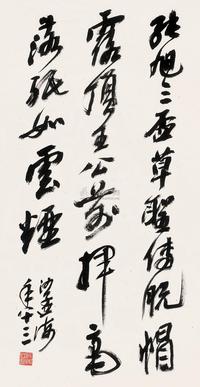 张旭三杯草聖傳脱帽
露頂王公前揮毫
落紙如雲煙
沙孟海
年八十三